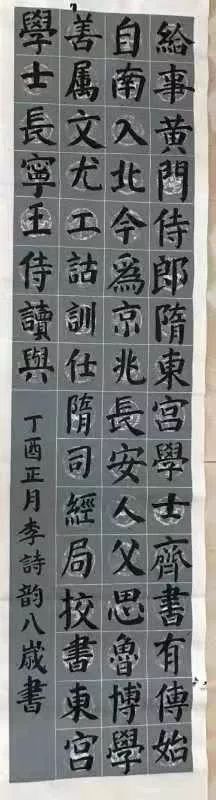 給事黃門侍郎隋東宮學士齊書有傳始
自南入北今爲京兆長安人父思魯博學
善属文尤工詁訓仕隋司經局挍書東宮
學士長寧王侍讀與
丁酉正月李詩韵八歳書